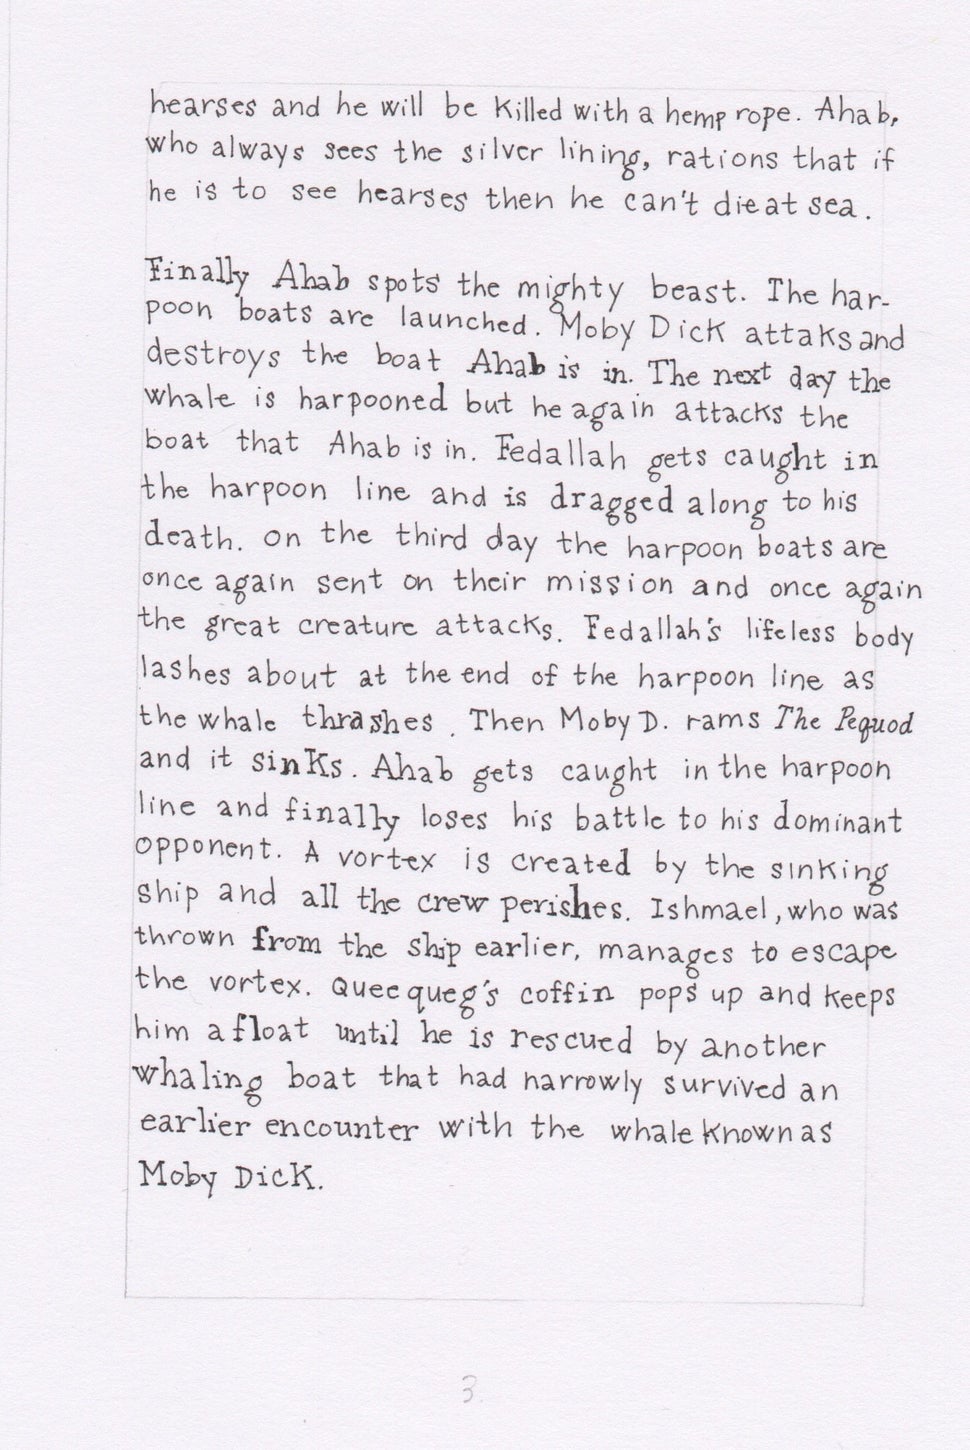 hearses and he will be killed with a hemp rope. Ahab,
who always sees the silver lining, rations that if
he is to see hearses then he can't die at sea.
Finally Ahab spots the mighty beast. The har-
poon boats are launched. Moby Dick attaks and
destroys the boat Ahab is in. The next day the
whale is harpooned but he again attacks the
boat that Ahab is in. Fedallah gets caught in
the harpoon line and is dragged along to his
death. On the third day the harpoon boats are
once again sent on their mission and once again
the great creature attacks. Fedallah's lifeless body
lashes about at the end of the harpoon line as
the whale thrashes. Then Moby D. rams The Pequod
and it sinks. Ahab gets caught in the harpoon
line and finally loses his battle to his dominant
opponent. A vortex is created by the sinking
ship and all the crew perishes. Ishmael, who was
thrown from the ship earlier, manages to escape
the vortex. Queequeg's coffin pops up and keeps
him afloat until he is rescued by another
whaling boat that had narrowly survived an
earlier encounter with the whale known as
Moby Dick.
3